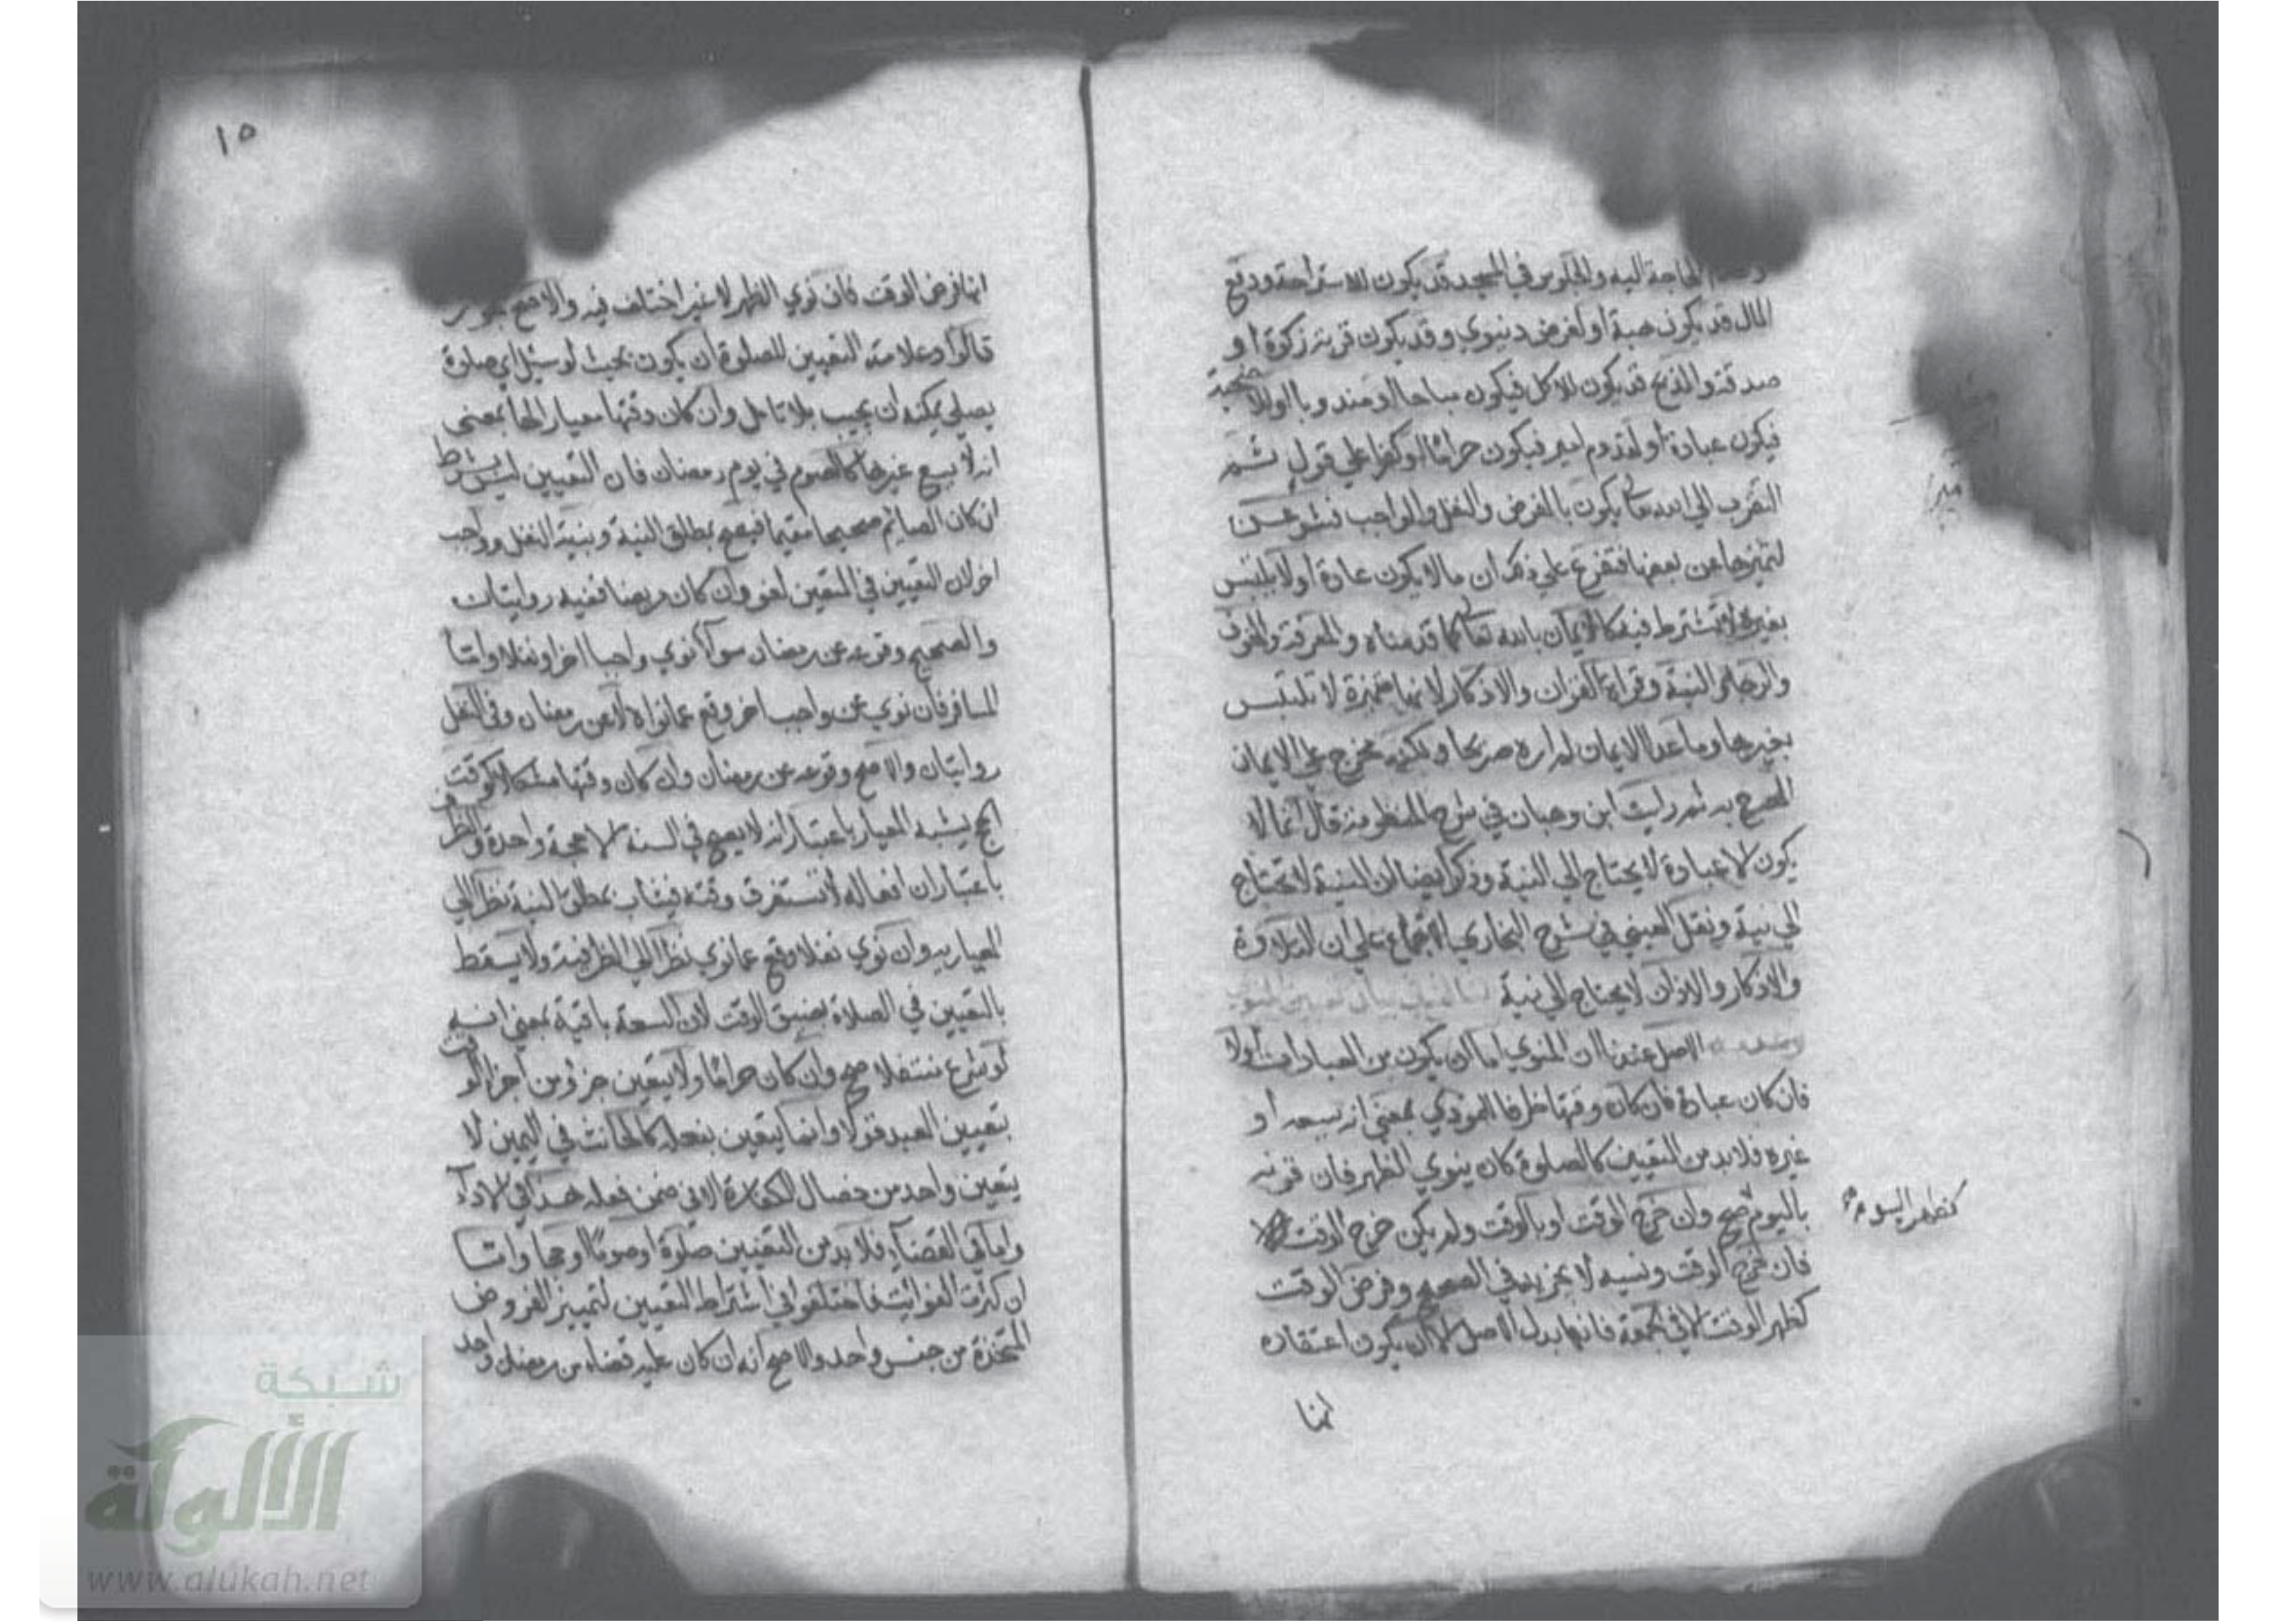 الحاجة اليه والجلوس في المسجد قد يكون للاستراحة ودفع
المال قد يكون هبة او لغرض دنيوي وقد يكون قربة زكوة او
صدقة والذبح قد يكون للاكل فيكون مباحا او مندوبا او للاضحية
فيكون عبادة او لقدوم امير فيكون حراما او كفرا علي قول ثم
التقرب الي الله تعا يكون بالفرض والنفل والواجب فشرعت
لتمييزها عن بعضها فتفرع علي ذلك ان ما لا يكون عادة او لا يلتبس
بغيره لا تشترط فيه كالايمان بالله تعا كما قدمناه والمعرفة والخوف
والرجاء والنية وقراءة القران والاذكار لانها متميزة لا تلتبس
بغيرها وما عدا الايمان لم اره صريحا ولكنه مخرج علي الايمان
المصرح به ثم رايت ابن وهبان في شرح المنظومة قال انما لا
يكون الا عبادة لا يحتاج الي النية وذكر ايضا ان النية لا تحتاج
الي نية ونقل العيني في شرح البخاري الاجماع علي ان التلاوة
والاذكار والاذان لا يحتاج الي نية
الاصل عندنا ان المنوي اما ان يكون من العبادات اولا
فان كان عبادة فان كان وقتها ظرفا للمؤدي بمعني انه يسعه او
غيره فلا بد من التعيين كالصلوة كان ينوي الظهر فان قرنه
باليوم صح وان خرج الوقت او بالوقت ولم يكن خرج الوقت
كظهر اليوم
فان خرج الوقت ونسيه لا يجزيه في الصحيح وفرض الوقت
كظهر الوقت الا في الجمعة فانها بدل الاصل الا ان يكون اعتقاده
انها
١٥
انها فرض الوقت فان نوي الظهر لا غير اختلف فيه والاصح
قالوا وعلامة التعيين للصلوة ان يكون بحيث لو سئل اي صلوة
يصلي يمكنه ان يجيب بلا تامل وان كان وقتها معيارا لها بمعني
انه لا يسع غيرها كالصوم في يوم رمضان فان التعيين ليس بشرط
ان كان الصائم صحيحا مقيما فيصح بمطلق النية وبنية النفل وواجب
اخر لان التعيين في المتعين لغو وان كان مريضا ففيه روايتان
والصحيح وقوعه عن رمضان سوآ نوي واجبا اخر او نفلا واما
المسافر فان نوي عن واجب اخر وقع عما نواه لا عن رمضان وفي النفل
روايتان والاصح وقوعه عن رمضان وان كان وقتها مشكلا كوقت
الحج يشبه المعيار باعتبار انه لا يصح في السنة الا حجة واحدة والظرف
باعتبار ان افعاله لا تستغرق وقته فيثاب بمطلق النية نظرا الي
المعيارية وان نوي نفلا وقع عما نوي نظرا الي الظرفية ولا يسقط
بالتعيين في الصلاة بضيق الوقت لان السعة باقية بمعني انه
لو شرع متنفلا صح وان كان حراما ولا يتعين جزؤ من اجزا الوقت
بتعيين العبد قولا وانما يتعين بفعله كالحانث في اليمين لا
يتعين واحد من خصال الكفارة الا في ضمن فعله هذا في الادآ
واما في القضآ فلا بد من التعيين صلوة او صوما او حجا واما
ان كثرت الفوائت فاختلفوا في اشتراط التعيين لتمييز الفروض
المتحدة من جنس واحد والاصح انه ان كان عليه قضاء من رمضان واحد
شبكة
الألوكة
www.alukah.net